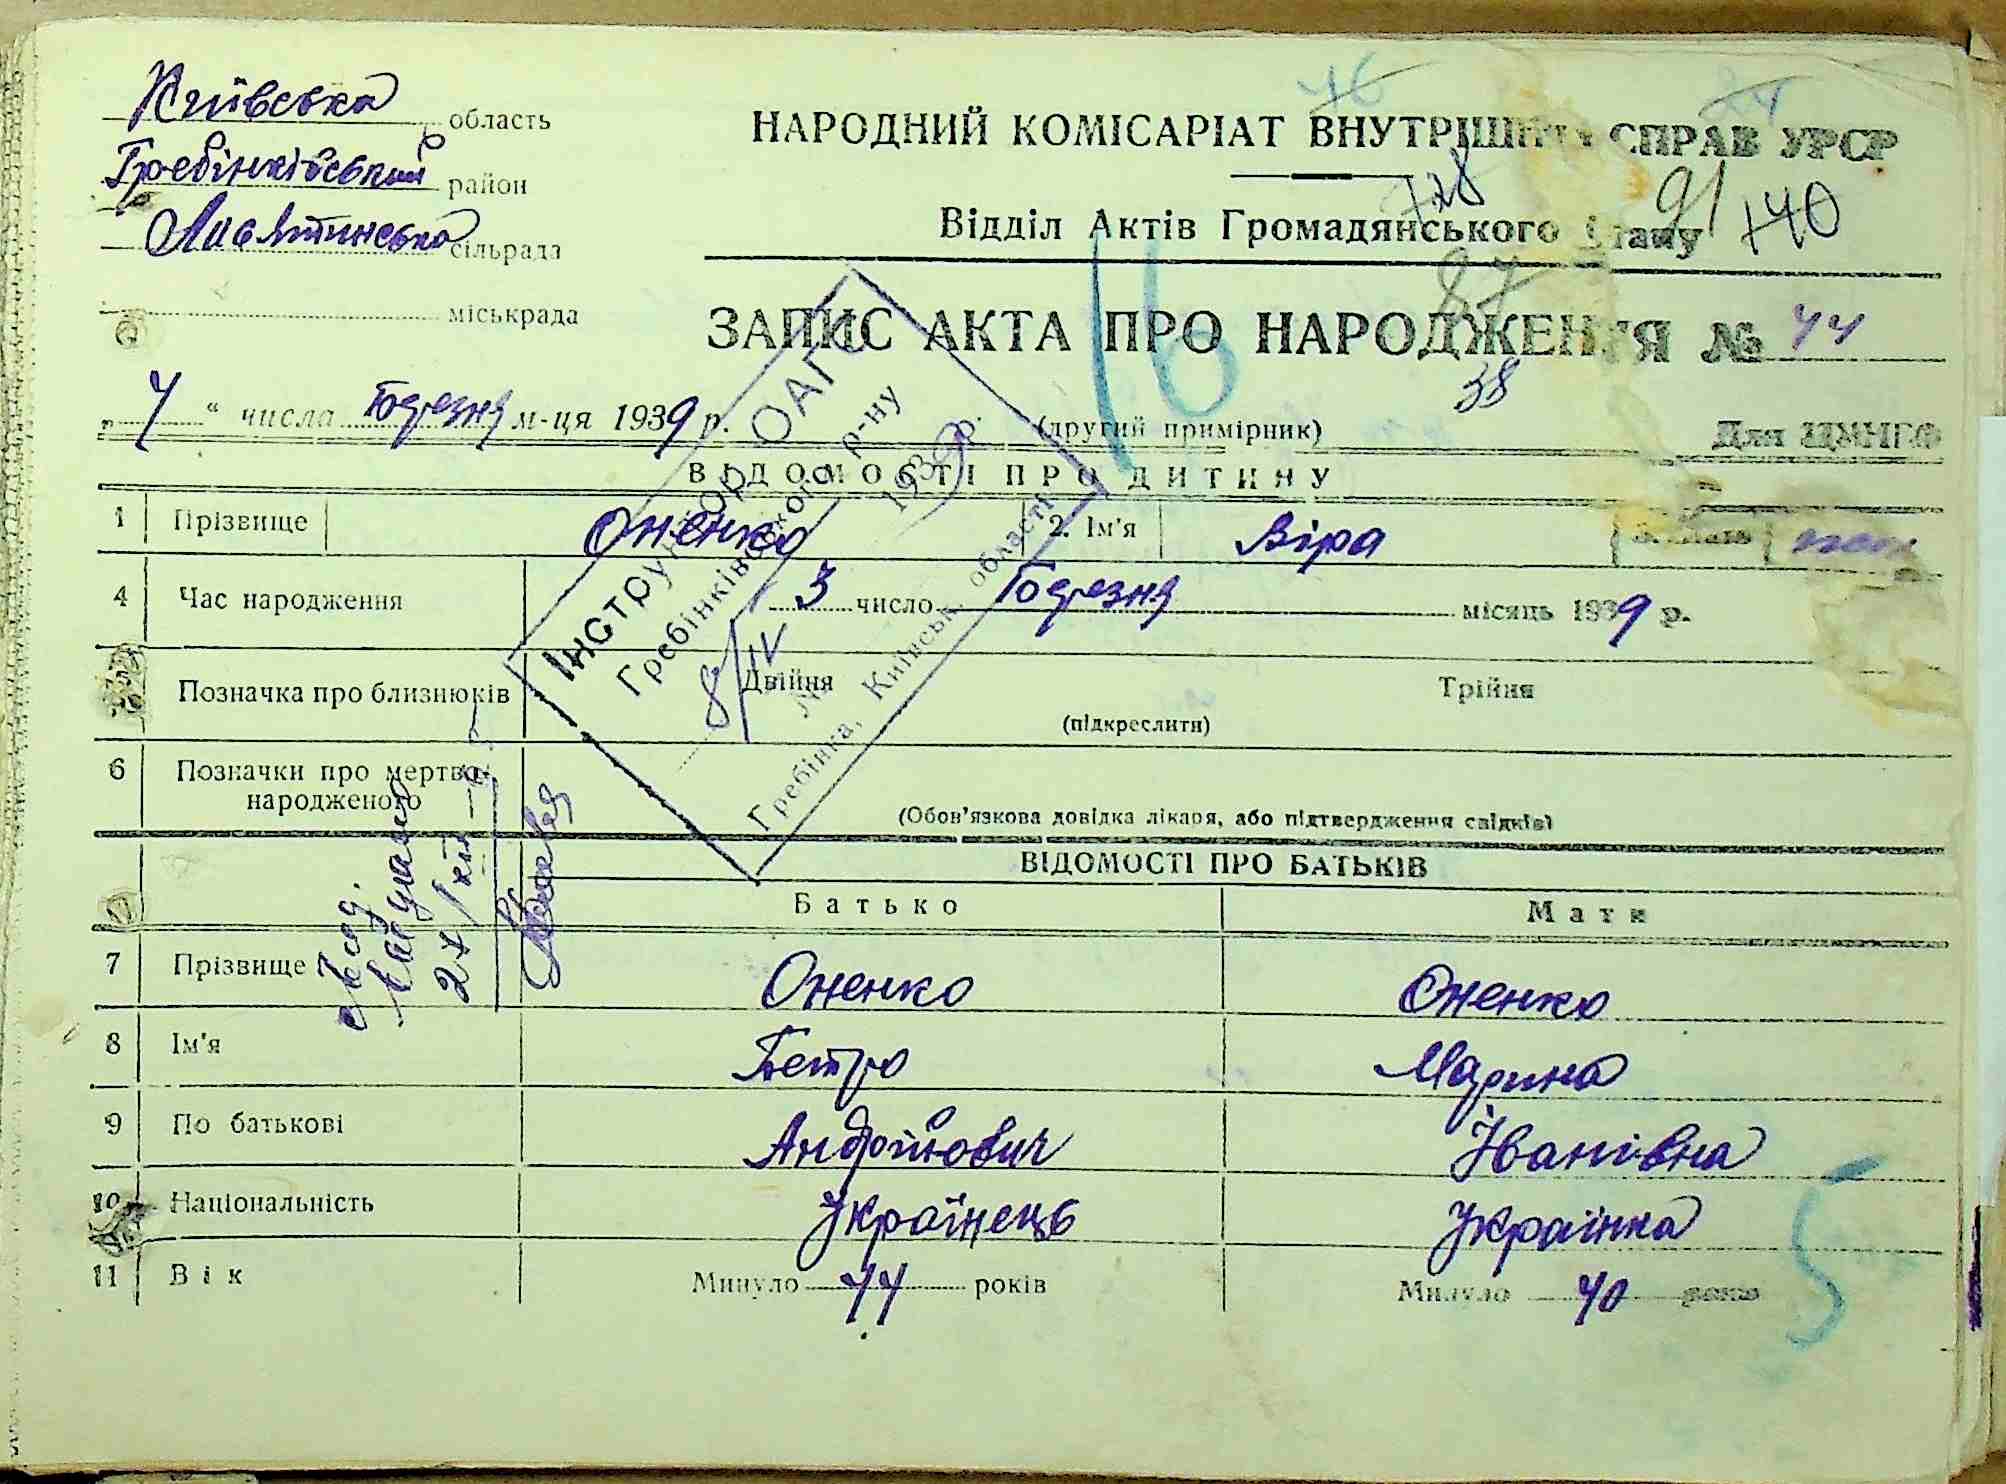 Київська область
Гребінківський район
сільрада
міськрада
НАРОДНИЙ КОМІСАРІАТ ВНУТРІШНІХ СПРАВ УРСР
Відділ Актів Громадянського Стану
76
24
128
91
140
87
16
ЗАПИС АКТА ПРО НАРОДЖЕННЯ № 44
38
„ 4 “ числа березня м-ця 1939 р.
(другий примірник)
Для ЦУНГО
ВІДОМОСТІ ПРО ДИТИНУ
1 Прізвище Оненко 2. Ім'я Віра
4 Час народження 3 число березня місяць 1939 р.
Позначка про близнюків Двійня Трійня
(підкреслити)
6 Позначки про мертво-
народженого
(Обов'язкова довідка лікаря, або підтвердження свідків)
Інструктор ОАГС
Гребінківського р-ну
8/IV 1939 р.
Гребінка, Київськ. області
ВІДОМОСТІ ПРО БАТЬКІВ
Батько Мати
7 Прізвище Оненко Оненко
8 Ім'я Петро Марина
9 По батькові Андрійович Іванівна
10 Національність Українець Українка
11 Вік Минуло 44 років Минуло 40 років
5